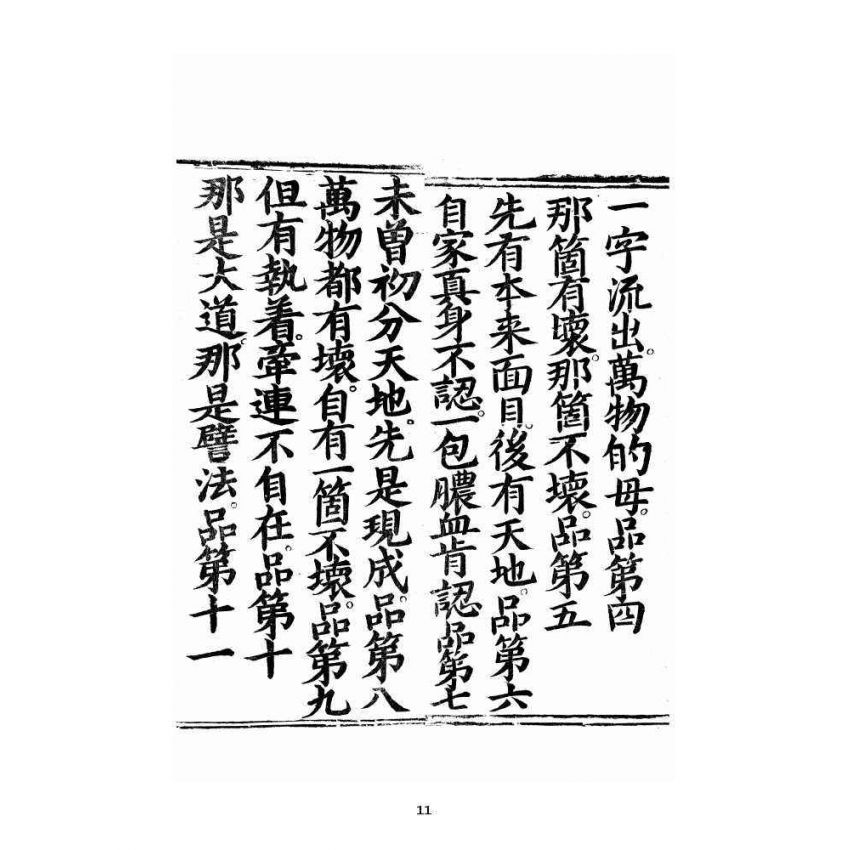 一字流出。萬物的母。品第四
那箇有壞。那箇不壞。品第五
先有本来面目。後有天地。品第六
自家真身不認。一包膿血肯認品第七
未曽初分天地。先是現成。品第八
萬物都有壞。自有一箇不壞。品第九
但有執着。牽連不自在。品第十
那是大道。那是譬法。品第十一
11